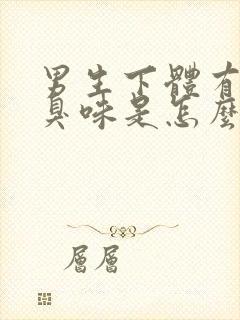 男生下體有
臭味是怎麼
層層